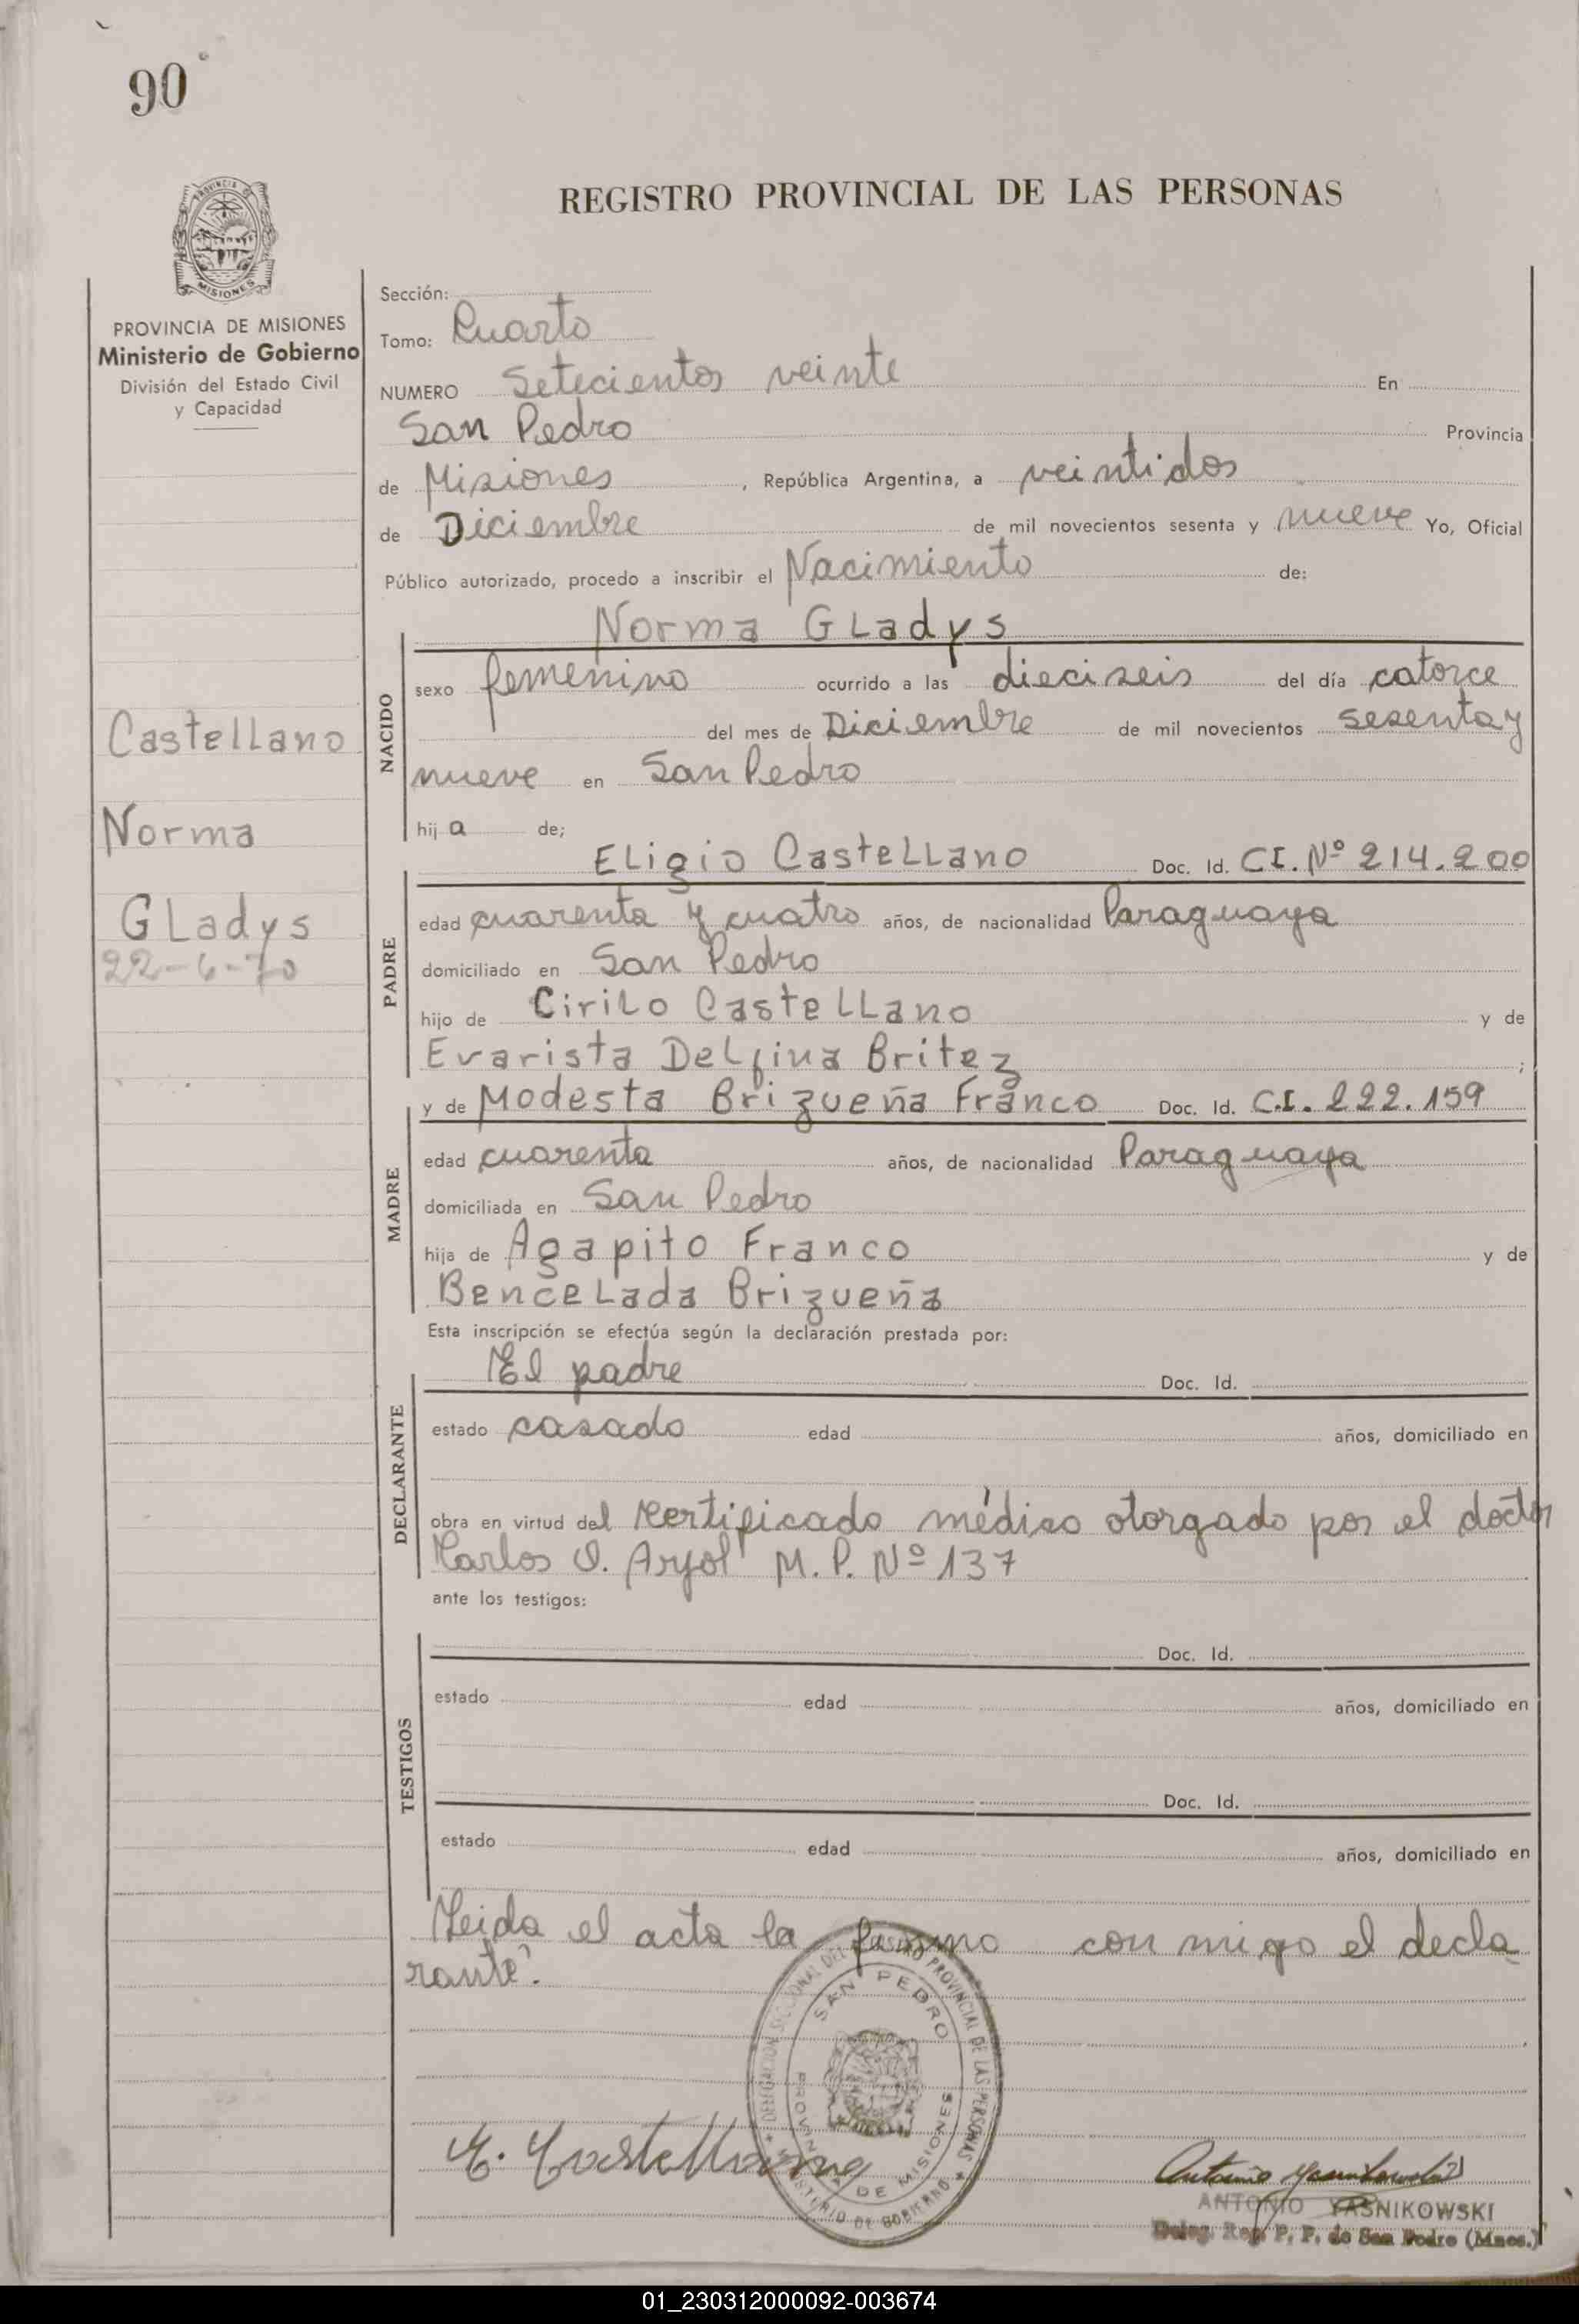 90
REGISTRO PROVINCIAL DE LAS PERSONAS
PROVINCIA DE MISIONES
Ministerio de Gobierno
División del Estado Civil
y Capacidad
Castellano
Norma
GLadys
22-6-70
Sección:
Tomo: Cuarto
NUMERO Setecientos veinte En
San Pedro Provincia
de Misiones, República Argentina, a veintidos
de Diciembre de mil novecientos sesenta y nueve Yo, Oficial
Público autorizado, procedo a inscribir el Nacimiento de:
Norma GLadys
NACIDO
sexo femenino ocurrido a las dieciseis del día catorce
del mes de Diciembre de mil novecientos sesenta y
nueve en San Pedro
hija de;
ELigio CasteLLano Doc. Id. CI. Nº 214.200
PADRE
edad cuarenta y cuatro años, de nacionalidad Paraguaya
domiciliado en San Pedro
hijo de CiriLo CasteLLano y de
Evarista DeLfina Britez ;
y de Modesta Brizueña Franco Doc. Id. C.I. 222.159
MADRE
edad cuarenta años, de nacionalidad Paraguaya
domiciliada en San Pedro
hija de Agapito Franco y de
BenceLada Brizueña
Esta inscripción se efectúa según la declaración prestada por:
El padre Doc. Id.
DECLARANTE
estado casado edad años, domiciliado en
obra en virtud del Certificado médico otorgado por el doctor
Carlos O. M. P. Nº 137
ante los testigos:
Doc. Id.
TESTIGOS
estado edad años, domiciliado en
Doc. Id.
estado edad años, domiciliado en
Leida el acta la firmo con migo el decla
rante.
DELEGACION SECCIONAL DEL REGISTRO PROVINCIAL DE LAS PERSONAS
SAN PEDRO
PROVINCIA DE MISIONES
MINISTERIO DE GOBIERNO
E. Castellano
ANTONIO YASNIKOWSKI
Deleg. Reg. P. P. de San Pedro (Mnes.)
01_230312000092-003674